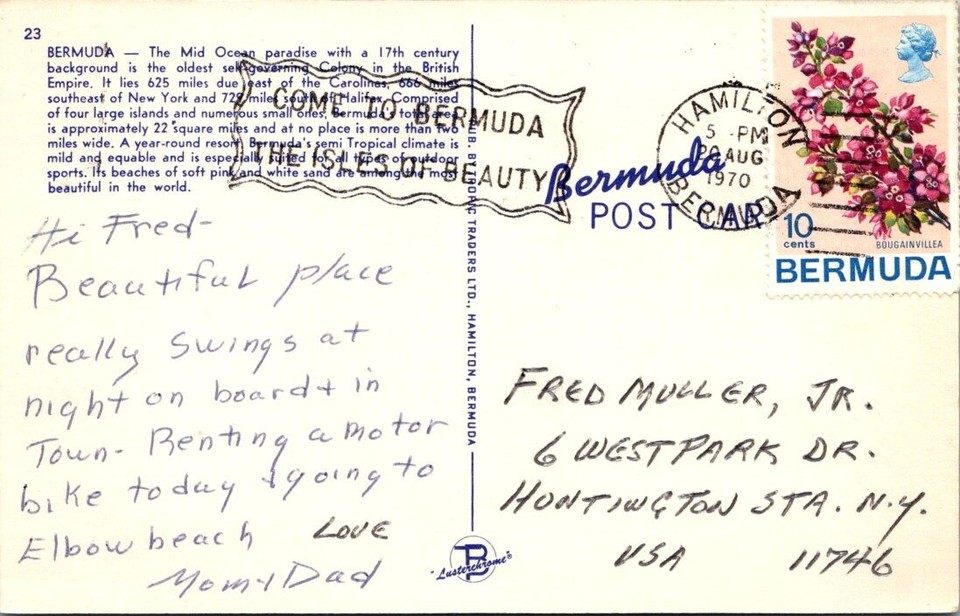 23
BERMUDA — The Mid Ocean paradise with a 17th century
background is the oldest self-governing Colony in the British
Empire. It lies 625 miles due east of the Carolinas, 666 miles
southeast of New York and 728 miles south of Halifax. Comprised
of four large islands and numerous small ones, Bermuda's total area
is approximately 22 square miles and at no place is more than two
miles wide. A year-round resort, Bermuda's semi Tropical climate is
mild and equable and is especially suited for all types of outdoor
sports. Its beaches of soft pink and white sand are among the most
beautiful in the world.
COME TO BERMUDA
THE ISLES OF BEAUTY
Hi Fred-
Beautiful place
really swings at
night on board + in
Town- Renting a motor
bike today + going to
Elbow beach
LOVE
Mom + Dad
PUB. BY NORDIC TRADERS LTD., HAMILTON, BERMUDA
TB
"Lusterchrome"®
Bermuda
POST CARD
HAMILTON
5 -PM
20 AUG
1970
BERMUDA
10
cents
BOUGAINVILLEA
BERMUDA
FRED MULLER, JR.
6 WESTPARK DR.
HUNTINGTON STA. N.Y.
USA 11746